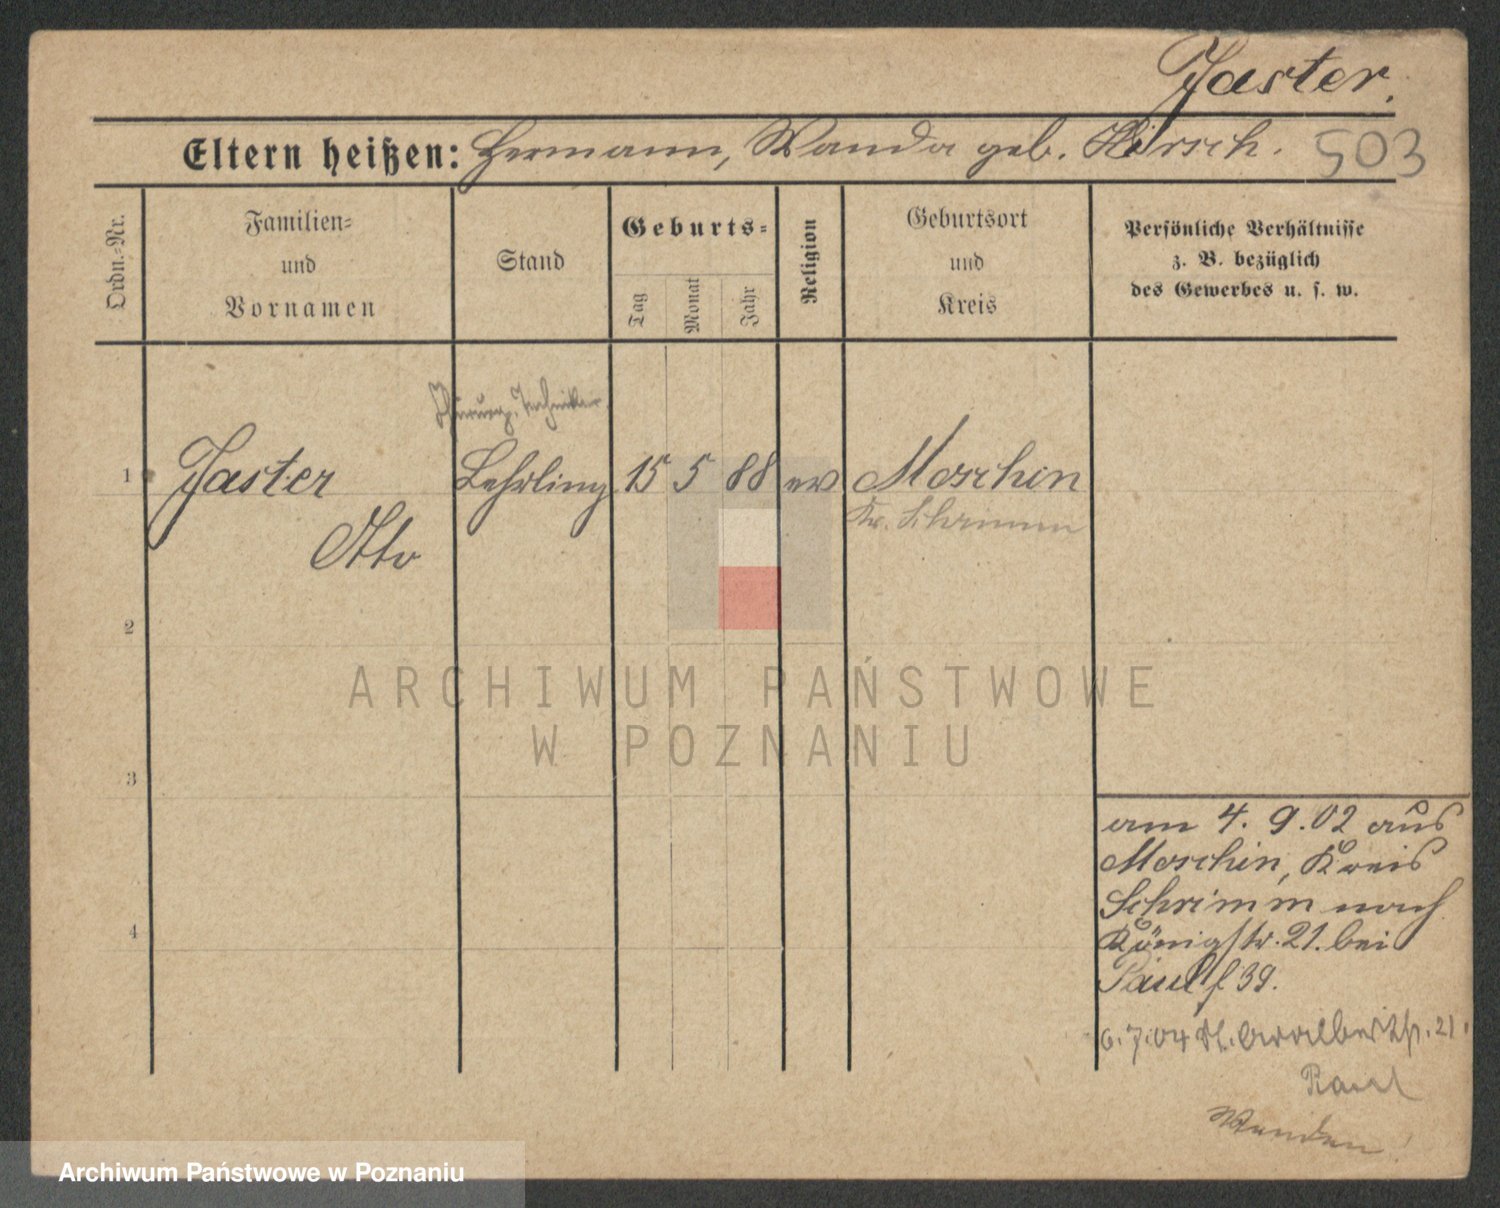 Jaster.
Eltern heißen: Hermann, Wanda geb. Hirsch.
503
Ordn.-Nr.
Familien-
und
Vornamen
Stand
Geburts-
Tag
Monat
Jahr
Religion
Geburtsort
und
Kreis
Persönliche Verhältnisse
z. B. bezüglich
des Gewerbes u. s. w.
Techniker
1 Jaster Lehrling 15 5 88 ev Moschin
Kr. Schrimm
Otto
2
3
4
ARCHIWUM PAŃSTWOWE
W POZNANIU
am 4. 9. 02 aus
Moschin, Kreis
Schrimm nach
Königstr. 21. bei
Paul f 39.
6. 7. 04 21.
Paul
Archiwum Państwowe w Poznaniu